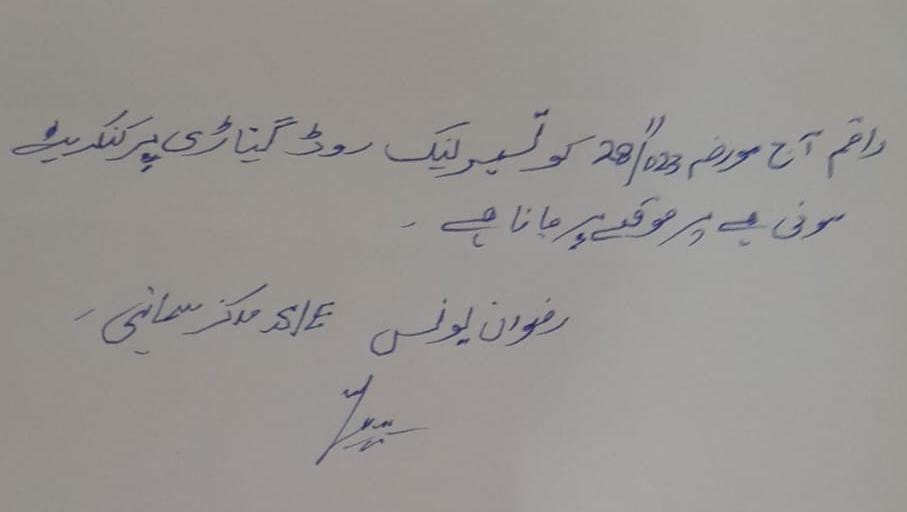 راقم آج مورخہ 28/11/023 کو تعمیر لنک روڈ گیتاڑی پر کنکریٹ
ہونی ہے پر موقعے پر جانا ہے ۔
رضوان یونس S/E مرکز سماہنی ۔